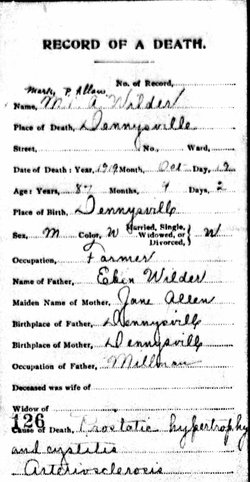 RECORD OF A DEATH.
No. of Record,
Mark P. Allan
Name, M. A. Wilder
Place of Death, Dennysville
Street, No., Ward,
Date of Death: Year, 1919 Month, Oct Day, 12
Age: Years, 87 Months, 9 Days, 2
Place of Birth, Dennysville
Sex, M Color, W Married, Single, Widowed, or Divorced, } W
Occupation, Farmer
Name of Father, Eben Wilder
Maiden Name of Mother, Jane Allen
Birthplace of Father, Dennysville
Birthplace of Mother, Dennysville
Occupation of Father, Millman
Deceased was wife of
Widow of
126
Cause of Death, Prostatic hypertrophy
and cystitis
Arteriosclerosis